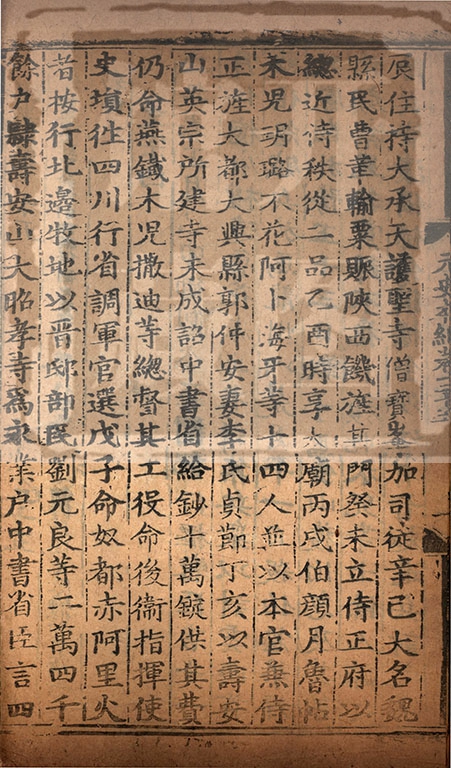 辰住持大承天護聖寺僧寶峯加司徒辛巳大名魏
縣民曹革輸粟賑陝西饑旌其門癸未立侍正府以
總近侍秩從二品乙酉時享太廟丙戌伯顏月魯帖
木兒玥璐不花阿卜海牙等十四人並以本官兼侍
正旌大都大興縣郭仲安妻李氏貞節丁亥以壽安
山英宗所建寺未成詔中書省給鈔十萬錠供其費
仍命燕鐵木兒撒迪等總督其工役命後衛指揮使
史塤往四川行省調軍官選戊子命奴都赤阿里火
者按行北邊牧地以晉邸部民劉元良等二萬四千
餘戶隸壽安山大昭孝寺爲永業戶中書省臣言四